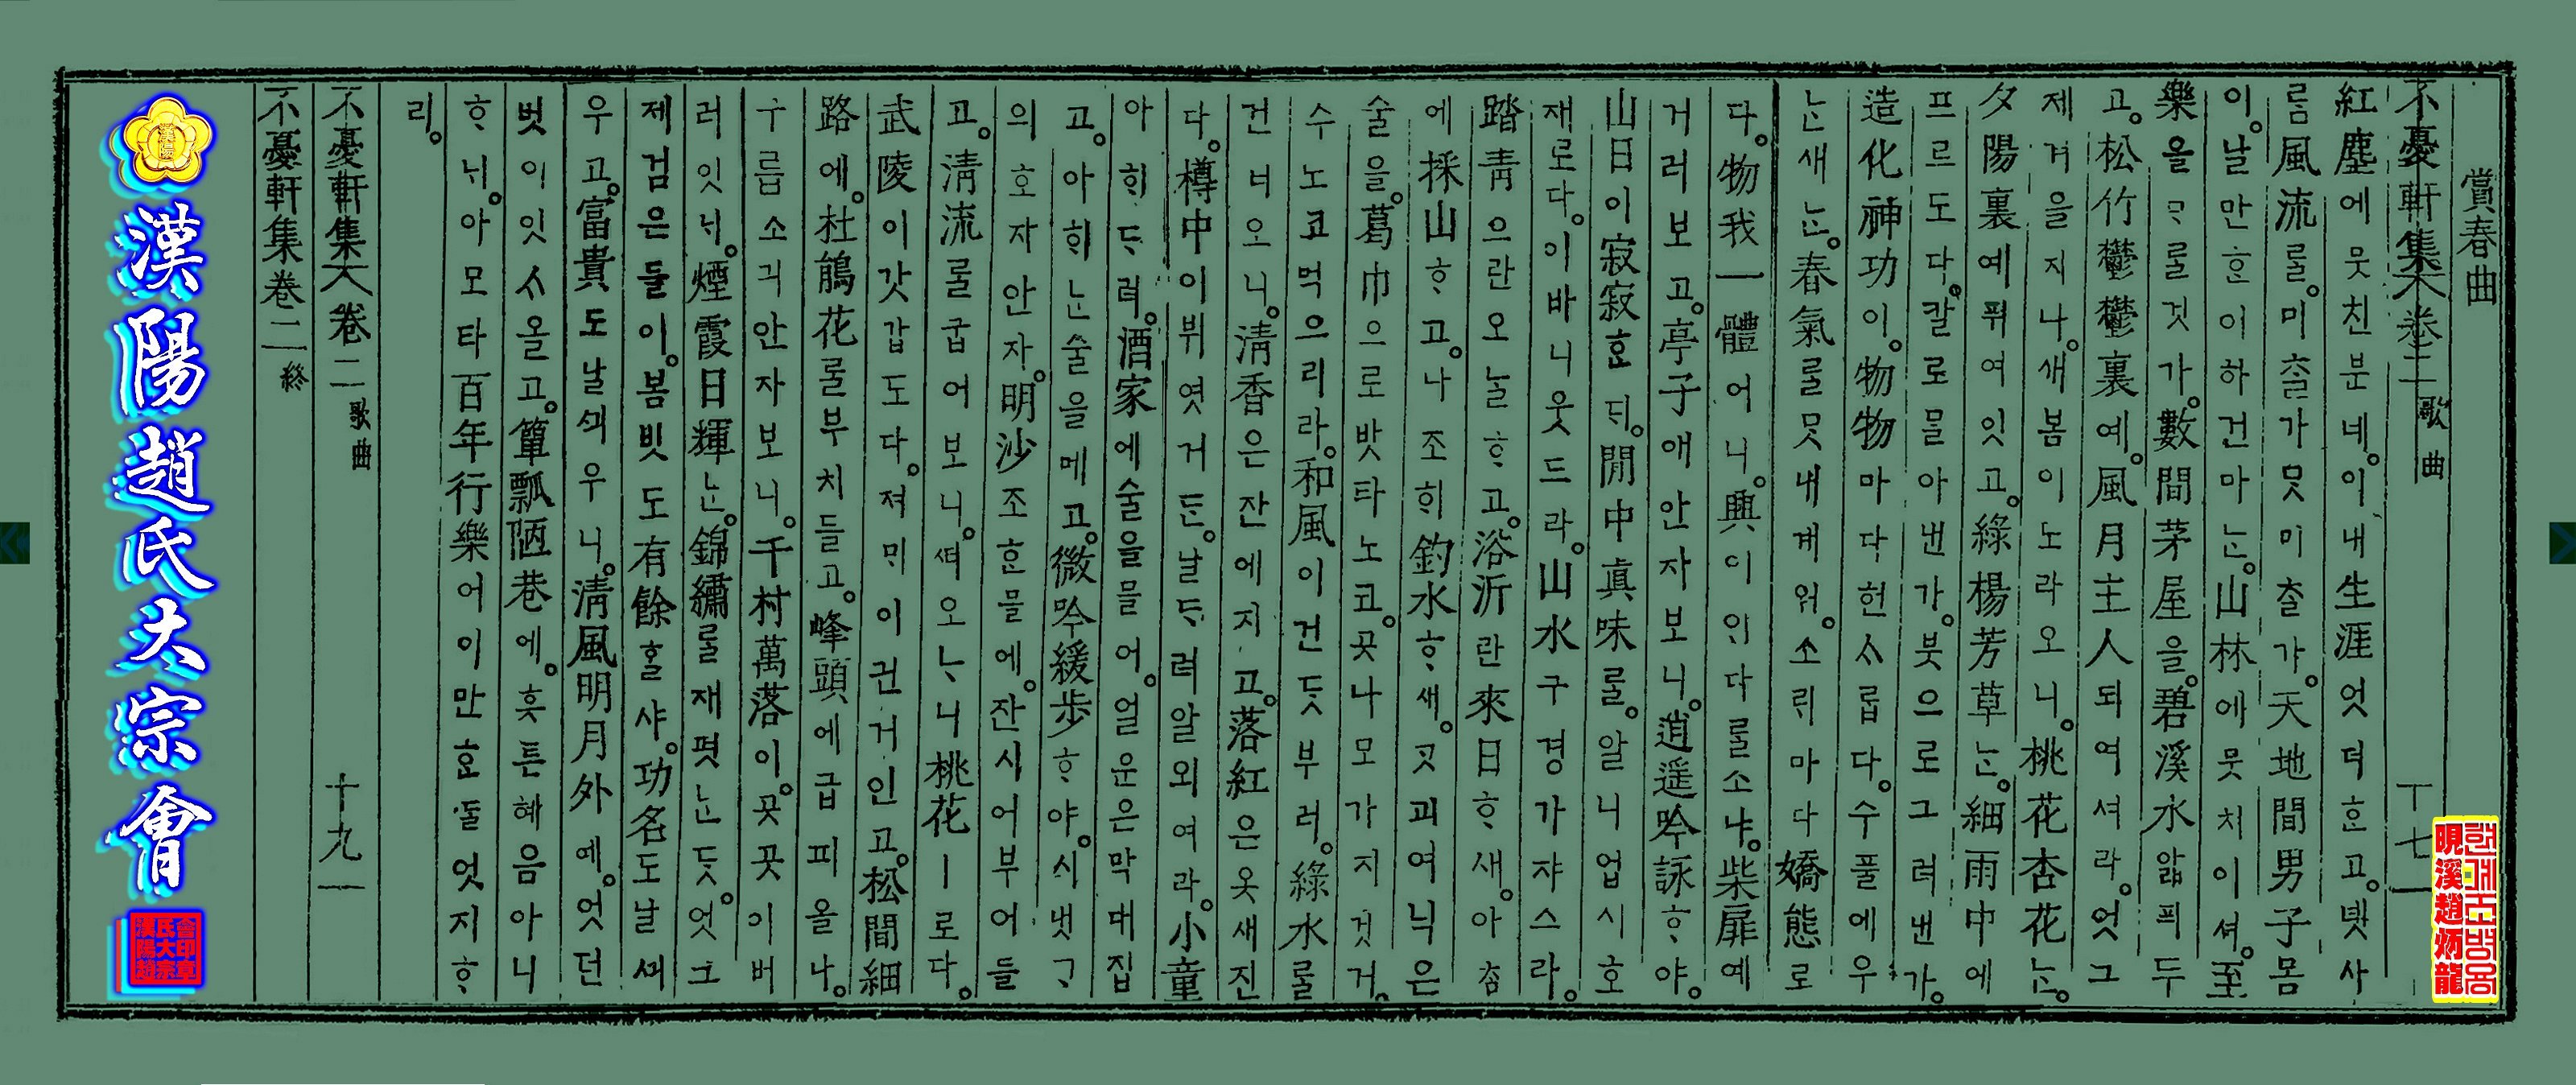 賞春曲
不憂軒集 卷二 歌曲 十七
紅塵에 뭇친분네。이내生涯엇더ᄒᆞᆫ고。녯사
ᄅᆞᆷ風流ᄅᆞᆯ。미ᄎᆞᆯ가ᄆᆞᆺ미ᄎᆞᆯ가。天地間男子몸
이。날만ᄒᆞᆫ이하건마ᄂᆞᆫ。山林에뭇치이셔。至
樂을ᄆᆞᄅᆞᆯ것가。數間茅屋을。碧溪水앏픠두
고。松竹鬱鬱裏예。風月主人되여셔라。엇그
제겨을지나。새봄이도라오니。桃花杏花ᄂᆞᆫ。
夕陽裏예퓌여잇고。綠楊芳草ᄂᆞᆫ。細雨中에
프르도다。칼로ᄆᆞᆯ아낸가。붓으로그려낸가。
造化神功이。物物마다헌ᄉᆞ롭다。수풀에우
ᄂᆞᆫ새ᄂᆞᆫ。春氣ᄅᆞᆯᄆᆞᆺ내계워。소ᄅᆡ마다嬌態로
다。物我一體어니。興이ᄋᆡ다ᄅᆞᆯ소냐。柴扉예
거러보고。亭子애안자보니。逍遥吟詠ᄒᆞ야。
山日이寂寂ᄒᆞᆫᄃᆡ。閒中眞味ᄅᆞᆯ。알니업시호
재로다。이바니웃드라。山水구경가쟈스라。
踏靑으란오ᄂᆞᆯᄒᆞ고。浴沂란來日ᄒᆞ새。아ᄎᆞᆷ
에採山ᄒᆞ고。나조ᄒᆡ釣水ᄒᆞ새。ᄀᆞᆺ괴여닉은
술을。葛巾으로밧타노코。곳나모가지것거。
수노코먹으리라。和風이건ᄃᆞᆺ부러。綠水ᄅᆞᆯ
건너오니。淸香은잔에지고。落紅은옷새진
다。樽中이뷔엿거ᄃᆞᆫ。날ᄃᆞ려알외여라。小童
아ᄒᆡᄃᆞ려。酒家에술을믈어。얼운은막대집
고。아ᄒᆡᄂᆞᆫ술을메고。微吟緩步ᄒᆞ야。시냇ᄀᆞ
의호자안자。明沙조ᄒᆞᆫ믈에。잔시어부어들
고。淸流ᄅᆞᆯ굽어보니。ᄯᅥ오ᄂᆞ니桃花ㅣ로다。
武陵이갓갑도다。져ᄆᆡ이귄거인고。松間細
路에。杜鵑花ᄅᆞᆯ부치들고。峰頭에급피올나。
구름소긔안자보니。千村萬落이。곳곳이버
러잇ᄂᆡ。煙霞日輝ᄂᆞᆫ。錦繡ᄅᆞᆯ재폇ᄂᆞᆫᄃᆞᆺ。엇그
제검은들이。봄빗도有餘ᄒᆞᆯ샤。功名도날ᄭᅴ
우고。富貴도날ᄭᅴ우니。淸風明月外예。엇던
벗이잇ᄉᆞ올고。簞瓢陋巷에。흣튼혜음아니
ᄒᆞᄂᆡ。아모타百年行樂어이만ᄒᆞᆫᄃᆞᆯ엇지ᄒᆞ
리。
不憂軒集 卷二 歌曲 十九
不憂軒集卷二 終
漢陽趙氏大宗會
晛溪趙炳龍